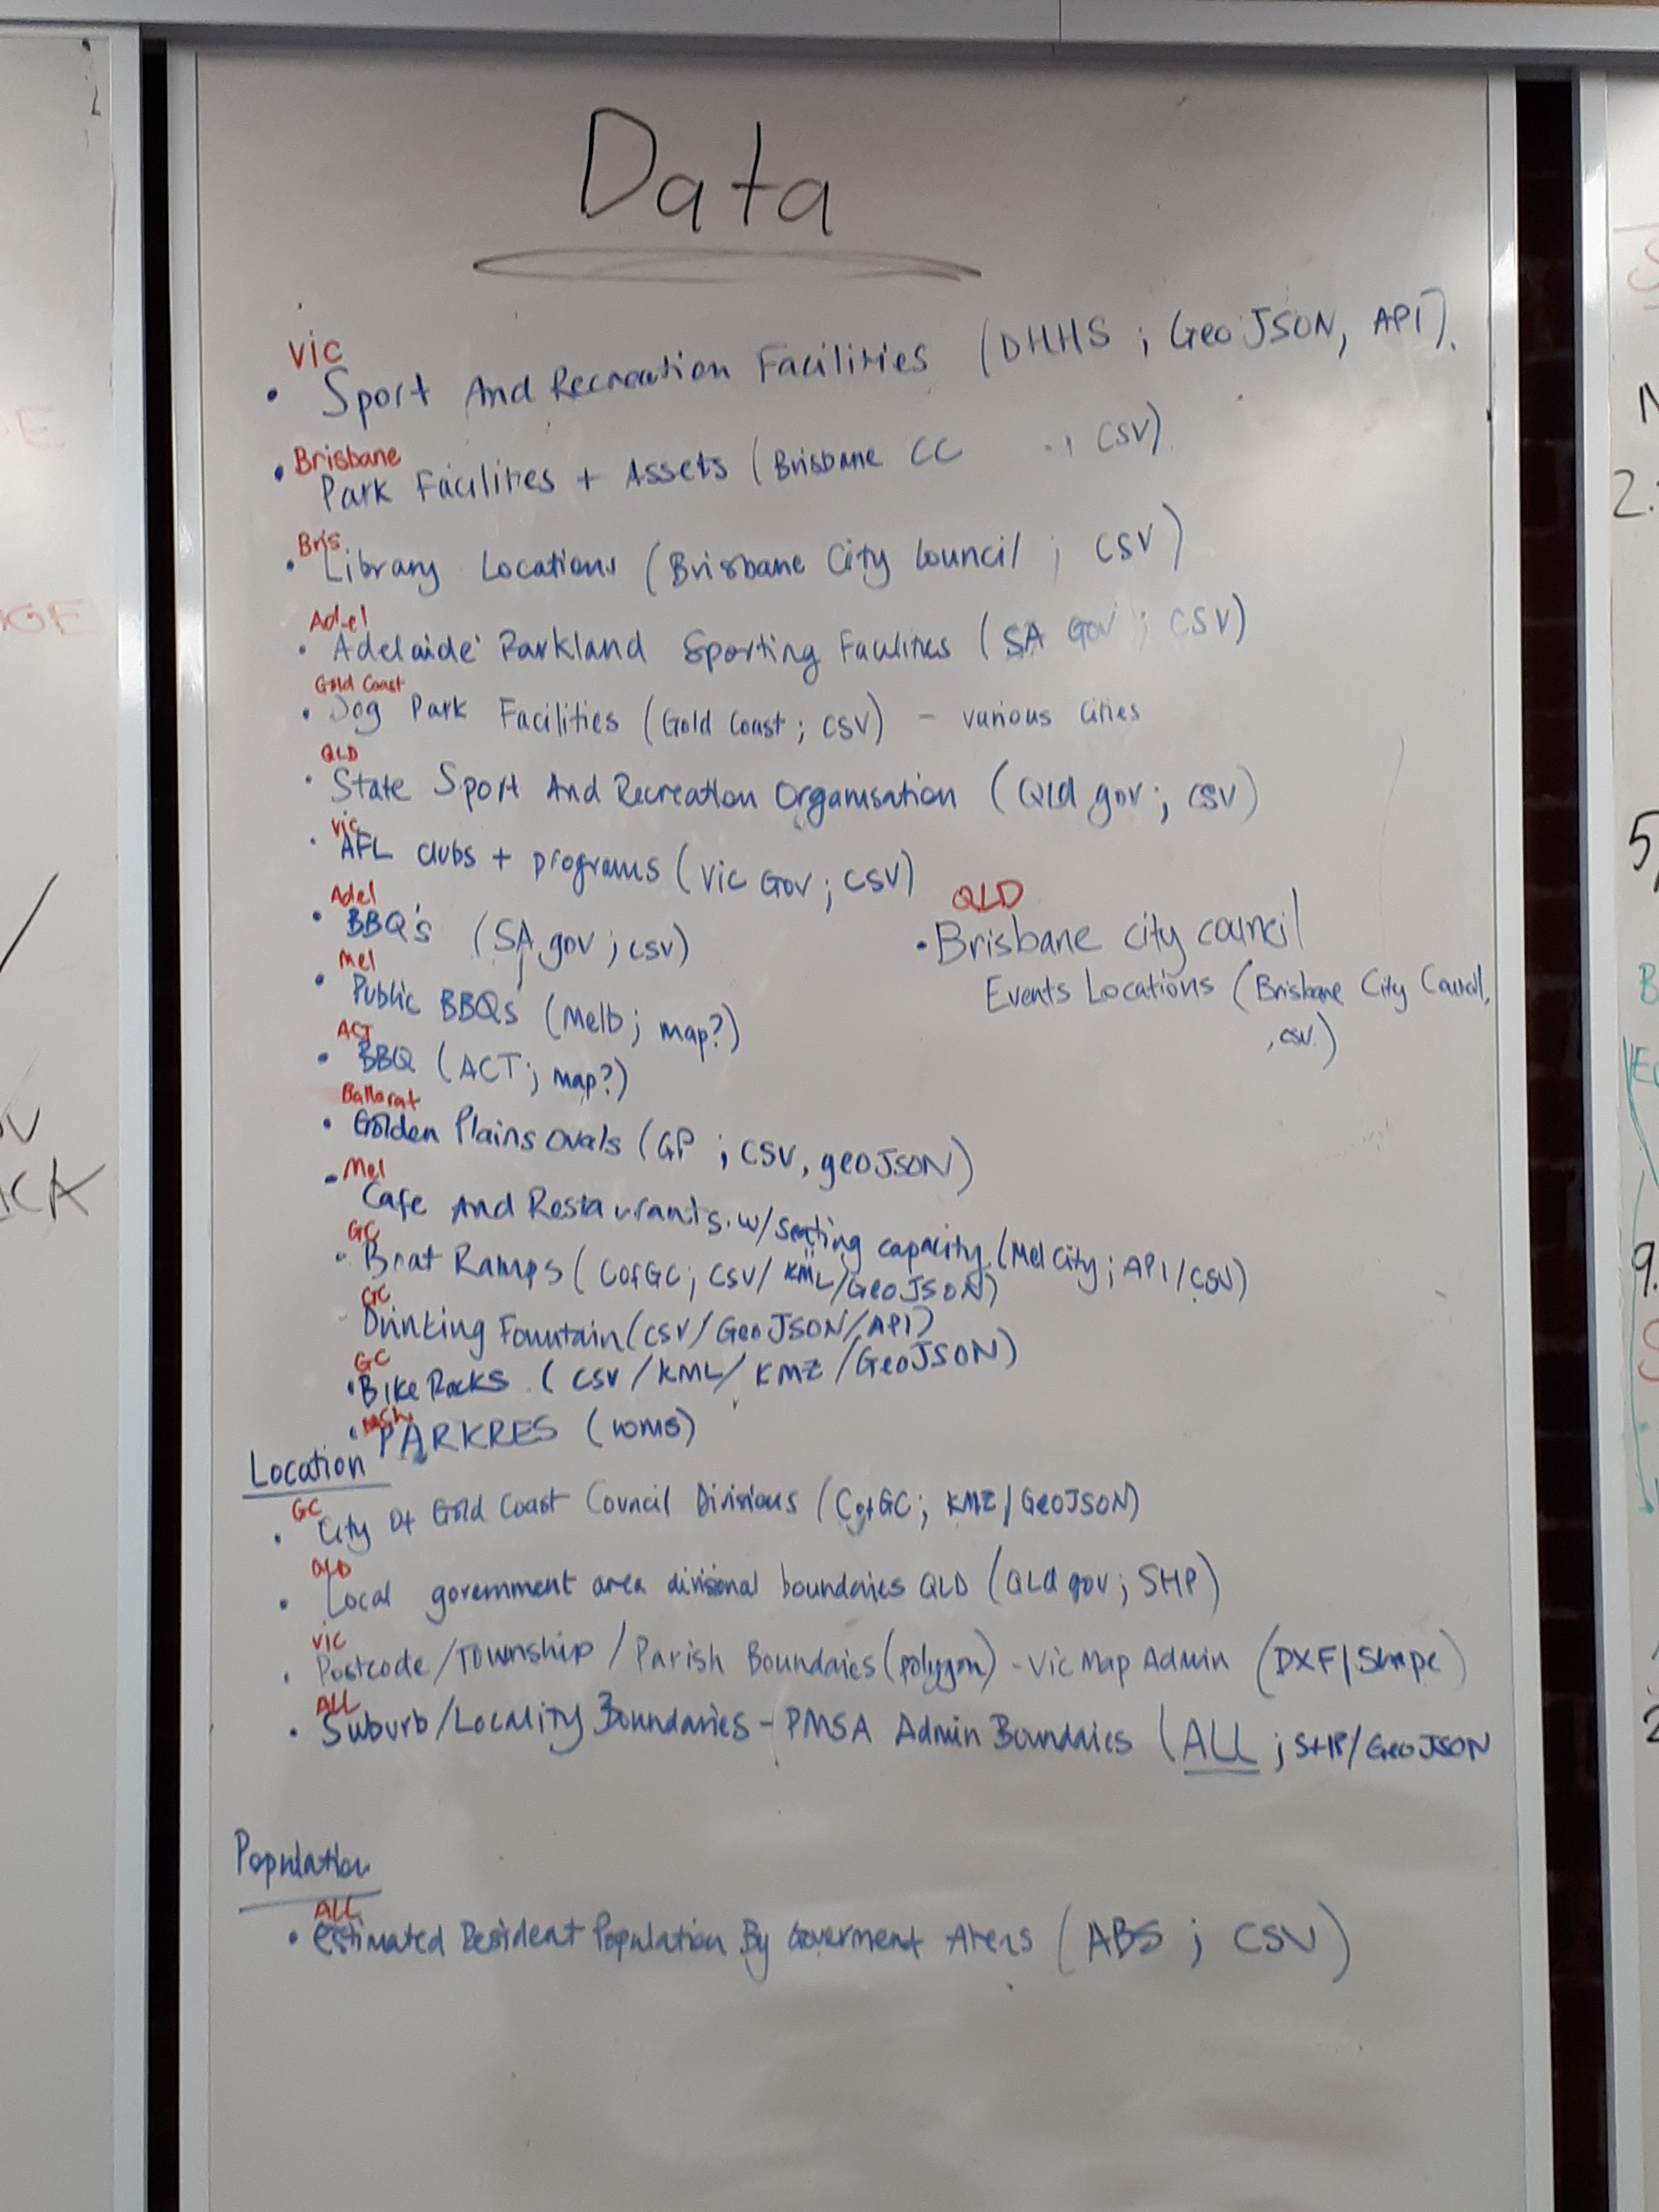 Data
Vic
• Sport And Recreation Facilities (DHHS ; GeoJSON, API).
Brisbane
• Park Facilities + Assets (Brisbane CC , CSV)
Bris
• Library Locations (Brisbane City Council ; CSV)
Adel
• Adelaide Parkland Sporting Facilities (SA Gov ; CSV)
Gold Coast
• Dog Park Facilities (Gold Coast ; CSV) - various cities
QLD
• State Sport And Recreation Organisation (Qld gov ; CSV)
Vic
• AFL clubs + programs (Vic Gov ; CSV)
Adel
• BBQ's (SA gov ; csv)
QLD
• Brisbane city council
Events Locations (Brisbane City Council,
, csv.)
Mel
• Public BBQs (Melb ; map?)
ACT
• BBQ (ACT ; map?)
Ballarat
• Golden Plains Ovals (GP ; CSV, geoJSON)
Mel
• Cafe And Restaurants w/ seating capacity (Mel City ; API/CSV)
GC
• Boat Ramps (CofGC ; CSV/KML/GeoJSON)
GC
Drinking Fountain (CSV/GeoJSON/API)
GC
• Bike Racks (CSV/KML/KMZ/GeoJSON)
• PARKRES (WMS)
Location
GC
• City Of Gold Coast Council Divisions (CofGC ; KMZ/GeoJSON)
QLD
• Local government area divisional boundaries QLD (Qld gov ; SHP)
Vic
• Postcode/Township/Parish Boundaries (polygon) - Vic Map Admin (DXF/Shape)
ALL
• Suburb/Locality Boundaries - PMSA Admin Boundaries (ALL ; SHP/GeoJSON
Population
ALL
• Estimated Resident Population By Goverment Areas (ABS ; CSV)